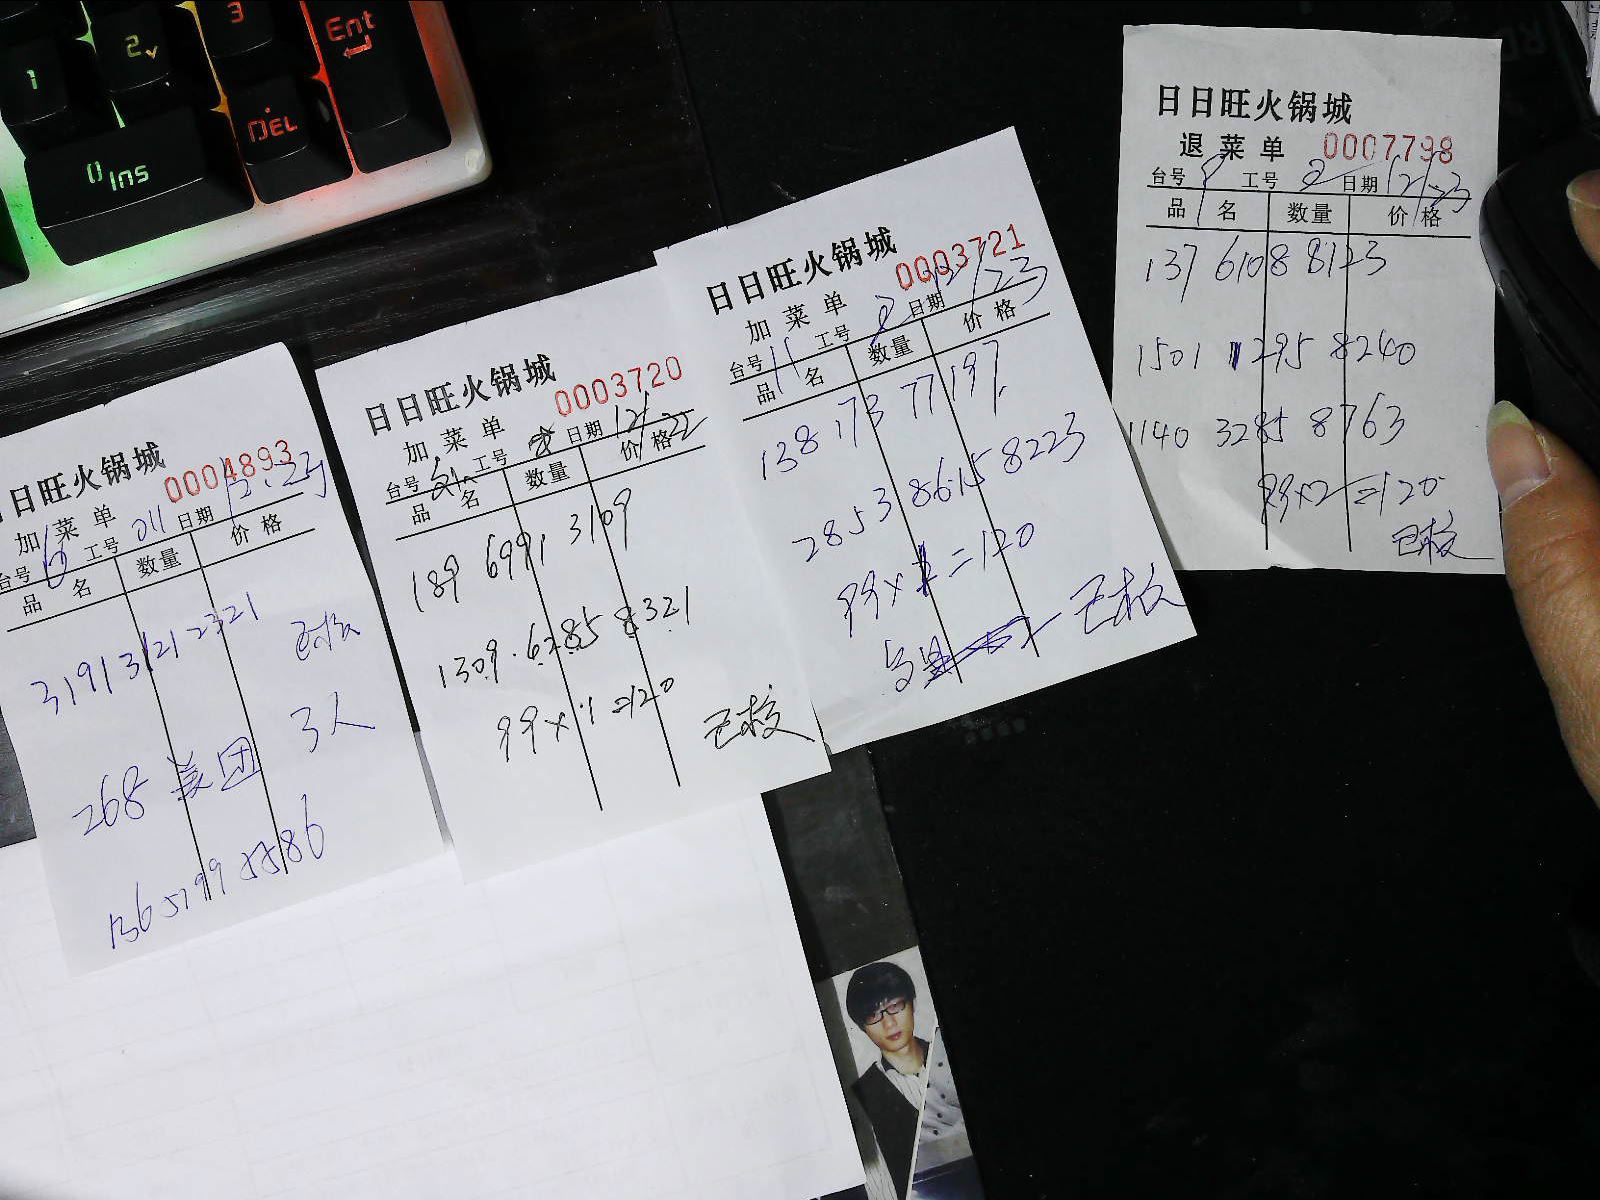 1
2
3
Ent
0 Ins
DEL
日日旺火锅城
加菜单 0004893
台号 6 工号 011 日期 12.23
品名 数量 价格
3191 3121 2321 已核
3人
268 美团
日日旺火锅城
加菜单 0003720
台号 工号 日期 12/22
品名 数量 价格
189 6991 3109
1309.6285 8321
99×1=120
已核
日日旺火锅城
加菜单 0003721
台号 11 工号 2 日期 12/23
品名 数量 价格
138 173 77197
2853 8615 8223
99×1=120
已核
日日旺火锅城
退菜单 0007798
台号 工号 2 日期 12/23
品名 数量 价格
137 6108 8123
1501 1295 8240
1140 3285 8763
99×2=120
已核